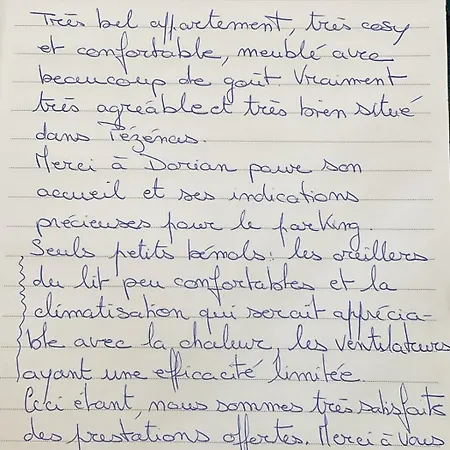 Très bel appartement, très cosy
et confortable, meublé avec
beaucoup de goût. Vraiment
très agréable et très bien situé
dans Pézénas.
Merci à Dorian pour son
accueil et ses indications
précieuses pour le parking.
Seuls petits bémols : les oreillers
du lit peu confortables et la
climatisation qui serait apprécia-
ble avec la chaleur, les ventilateurs
ayant une efficacité limitée
Ceci étant, nous sommes très satisfaits
des prestations offertes. Merci à Vous